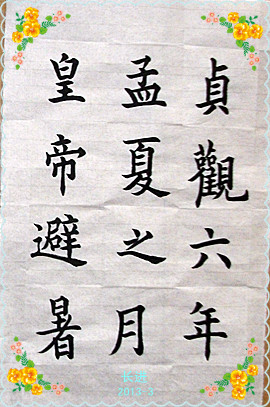 貞觀六年
孟夏之月
皇帝避暑
2013.5